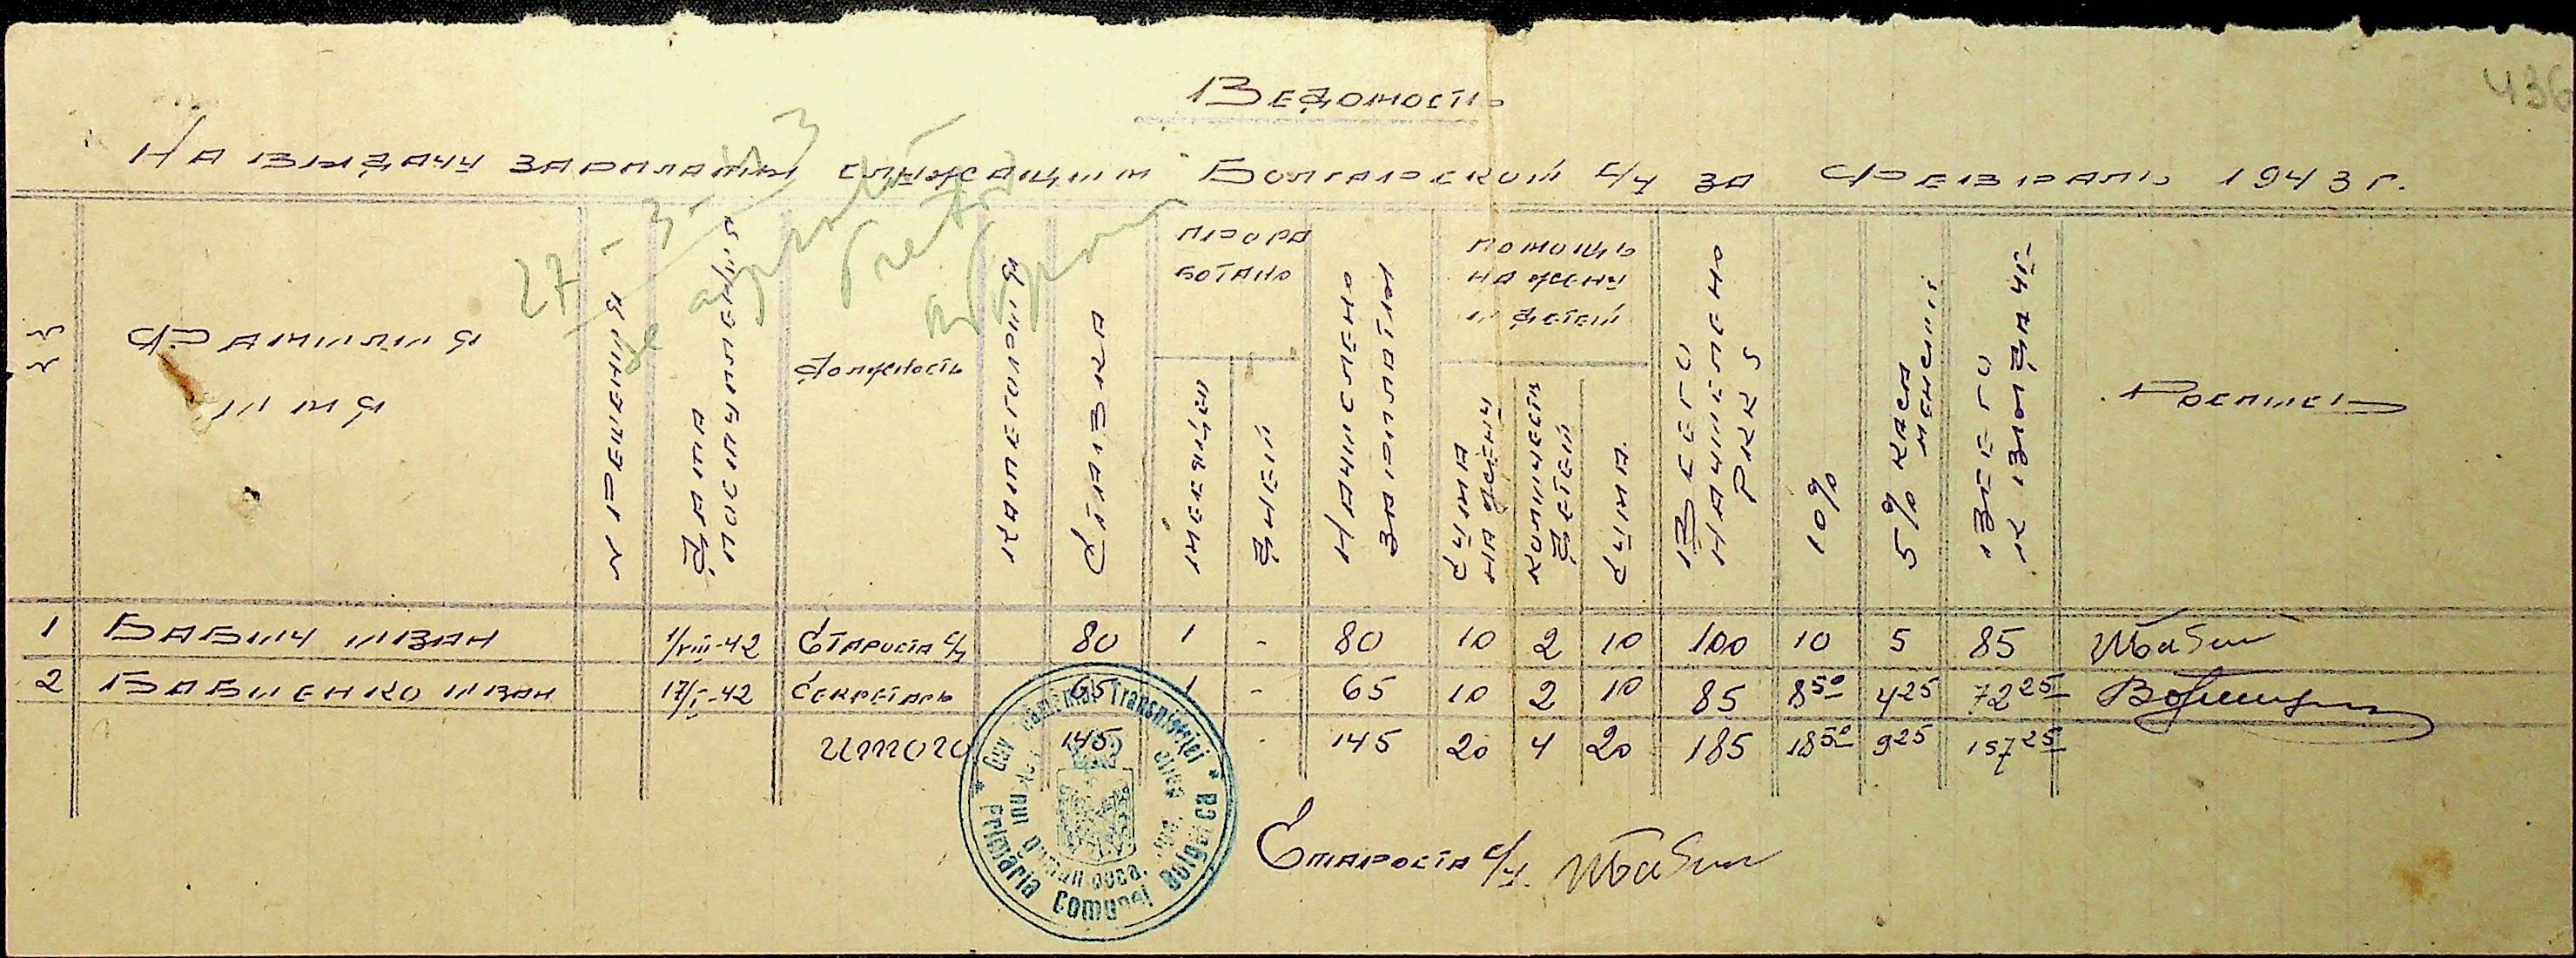 436
Ведомость
На выдачу зарплаты служащим Болгарской с/у за Февраль 1943 г.
27-3-43
№ №
Фамилия
имя
Дата
Должность
Ставка
прора
ботано
месяцев
дней
Начислено
помощь
на жену
и детей
Сума
на жену
количество
детей
Сума
Всего
начислено
РККS
10%
5% каса
Всего
к выдачи
Роспись
1 Бабич Иван 1/VIII-42 Староста с/у 80 1 - 80 10 2 10 100 10 5 85
2 Бабиенко Иван 17/I-42 Секретарь 65 1 - 65 10 2 10 85 8 50 4 25 72 25
Итого 145 145 20 4 20 185 18 50 9 25 157 25
Староста с/у.
Transnistriei
Primăria Comunei